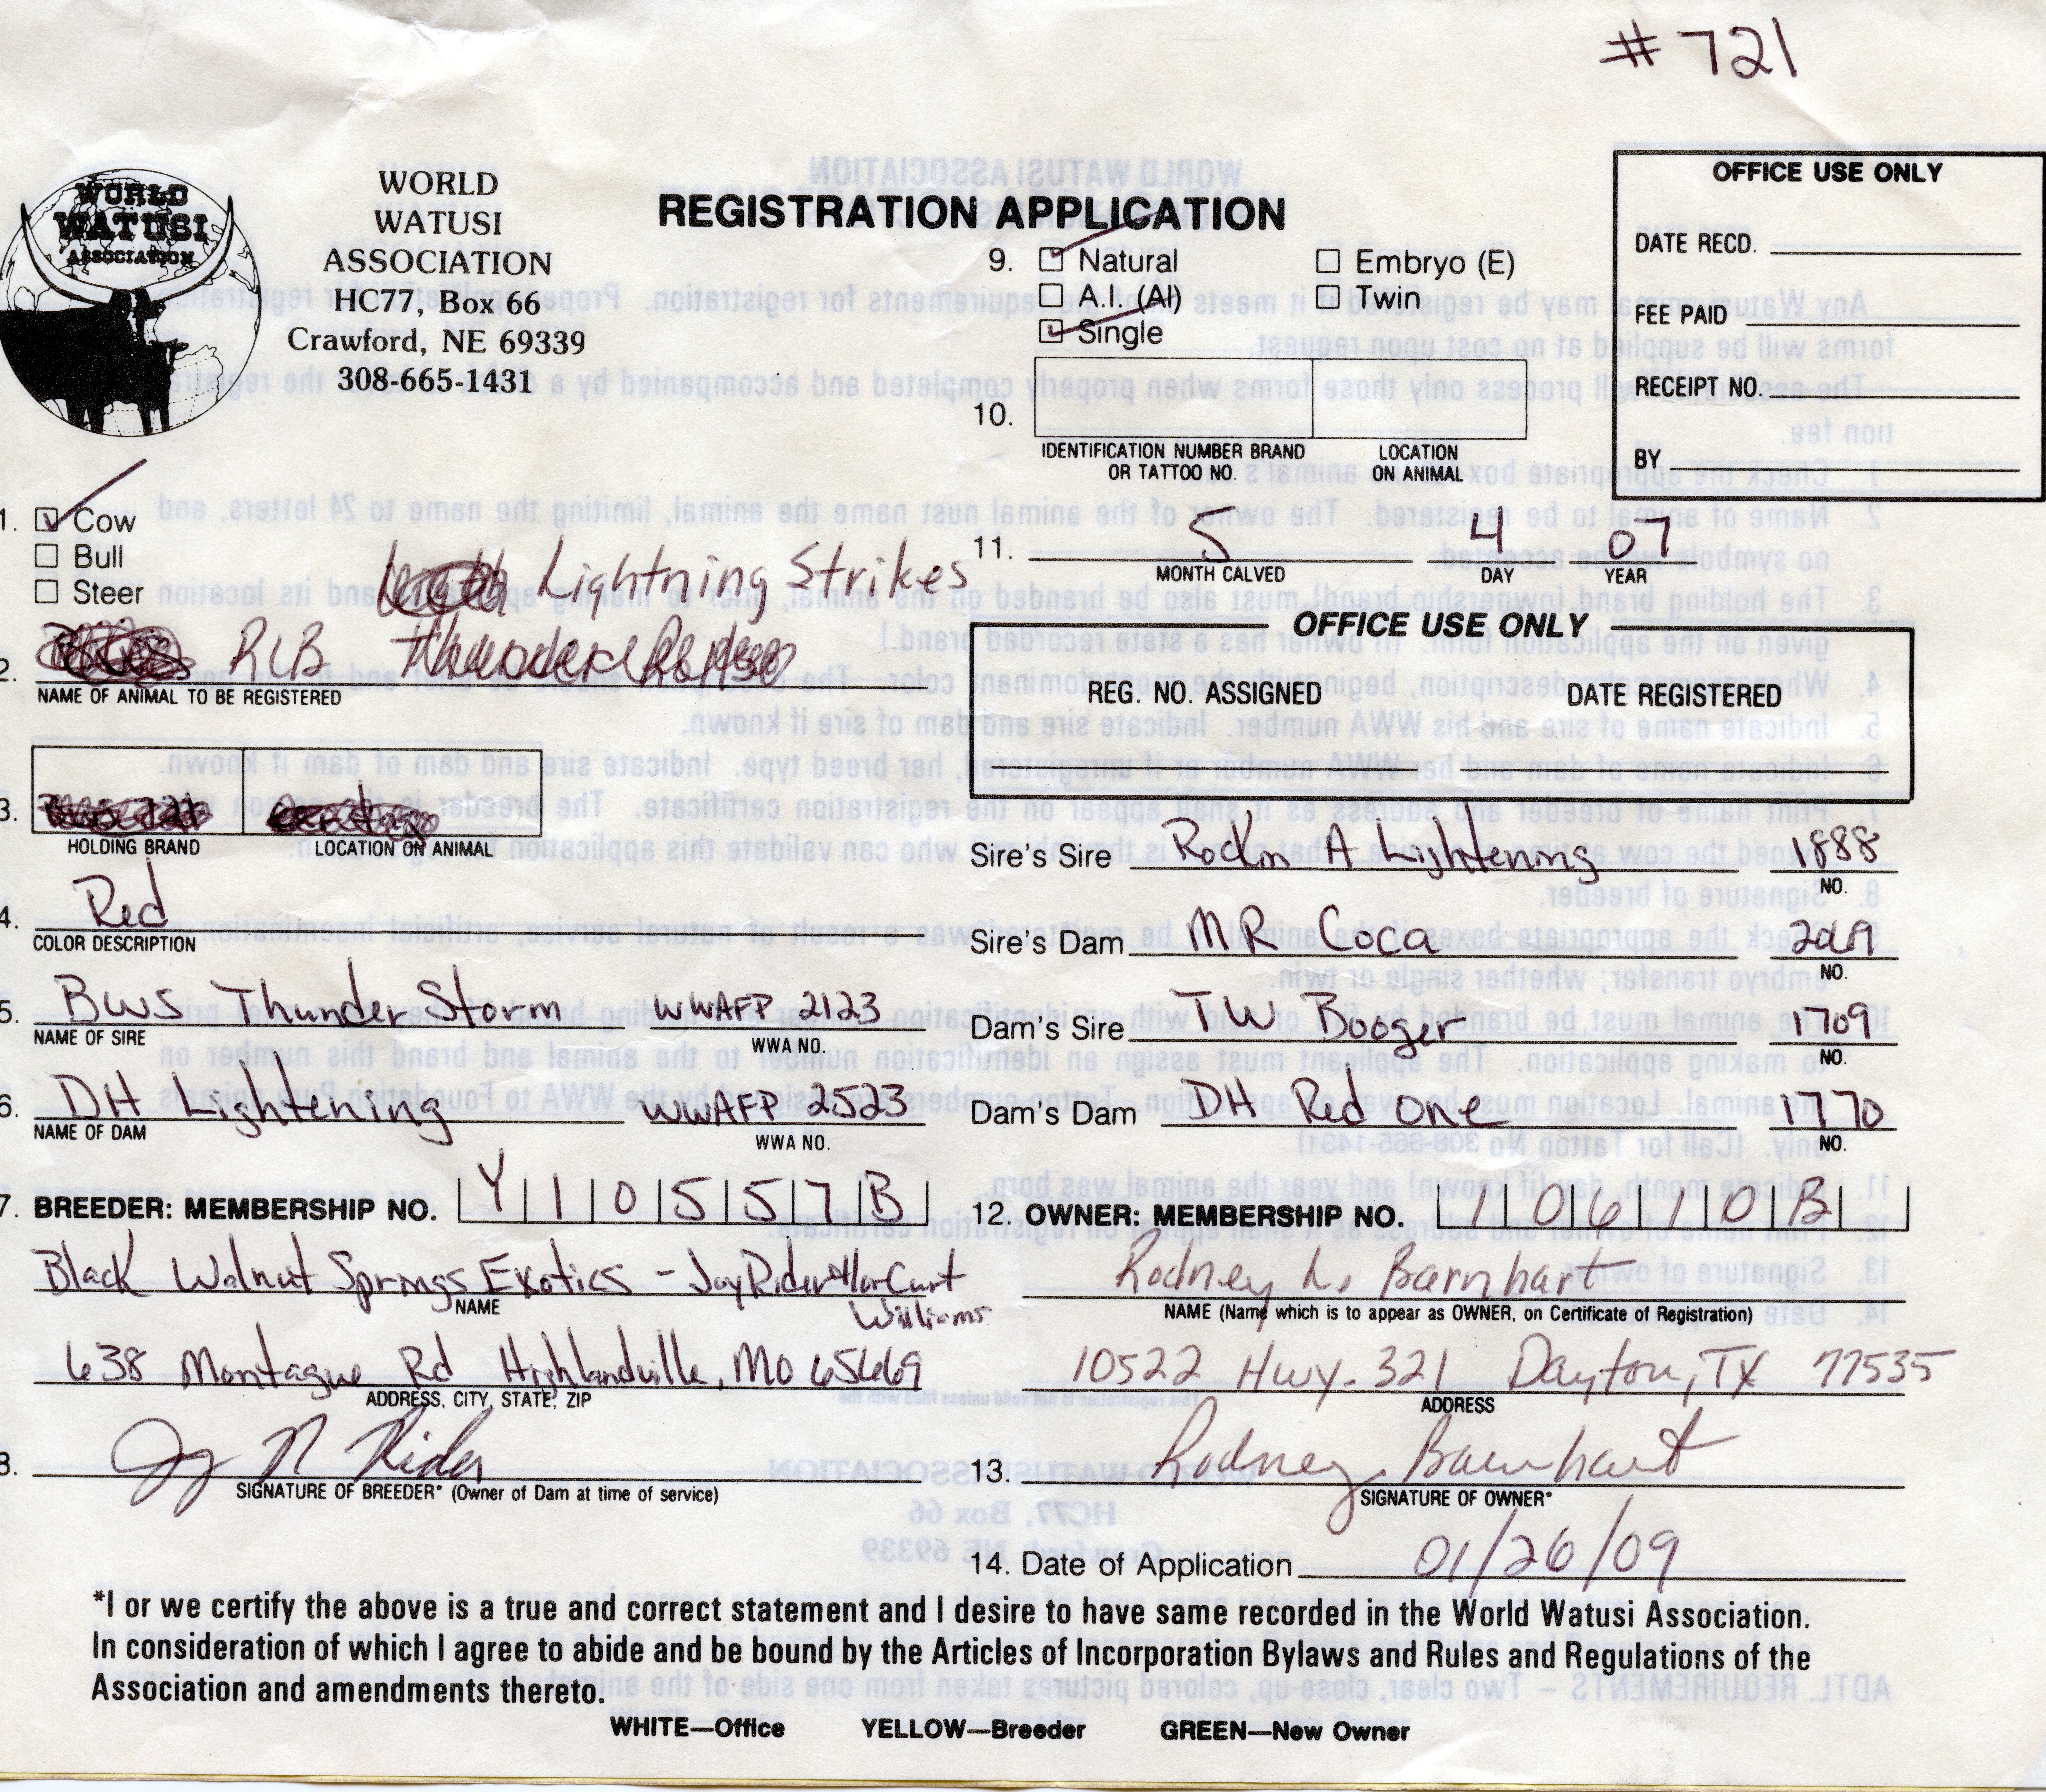 # 721
WORLD
WATUSI
ASSOCIATION
WORLD
WATUSI
ASSOCIATION
HC77, Box 66
Crawford, NE 69339
308-665-1431
REGISTRATION APPLICATION
9. Natural
Embryo (E)
A.I. (AI)
Twin
Single
10.
IDENTIFICATION NUMBER BRAND
OR TATTOO NO.
LOCATION
ON ANIMAL
OFFICE USE ONLY
DATE RECD.
FEE PAID
RECEIPT NO.
BY
1. Cow
Bull
Steer
11. 5 4 07
MONTH CALVED DAY YEAR
Lightning Strikes
2. RLB
NAME OF ANIMAL TO BE REGISTERED
OFFICE USE ONLY
REG. NO. ASSIGNED DATE REGISTERED
3.
HOLDING BRAND LOCATION ON ANIMAL
4. Red
COLOR DESCRIPTION
5. BWS Thunder Storm WWAFP 2123
NAME OF SIRE WWA NO.
6. DH Lightening WWAFP 2523
NAME OF DAM WWA NO.
Sire's Sire A Lightening 1888
NO.
Sire's Dam MR Coca
NO.
Dam's Sire TW Booger 1709
NO.
Dam's Dam DH Red One 1770
NO.
7. BREEDER: MEMBERSHIP NO. Y 1 0 5 5 7 B
Black Walnut Springs Exotics - Jay Rider Curt
Williams
NAME
638 Montague Rd Highlandville, MO 65669
ADDRESS, CITY, STATE, ZIP
8. Jay N Rider
SIGNATURE OF BREEDER* (Owner of Dam at time of service)
12. OWNER: MEMBERSHIP NO. 1 0 6 1 0 B
Rodney L. Barnhart
NAME (Name which is to appear as OWNER, on Certificate of Registration)
10522 Hwy. 321 Dayton, TX 77535
ADDRESS
13. Rodney Barnhart
SIGNATURE OF OWNER*
14. Date of Application 01/26/09
*I or we certify the above is a true and correct statement and I desire to have same recorded in the World Watusi Association.
In consideration of which I agree to abide and be bound by the Articles of Incorporation Bylaws and Rules and Regulations of the
Association and amendments thereto.
WHITE—Office YELLOW—Breeder GREEN—New Owner